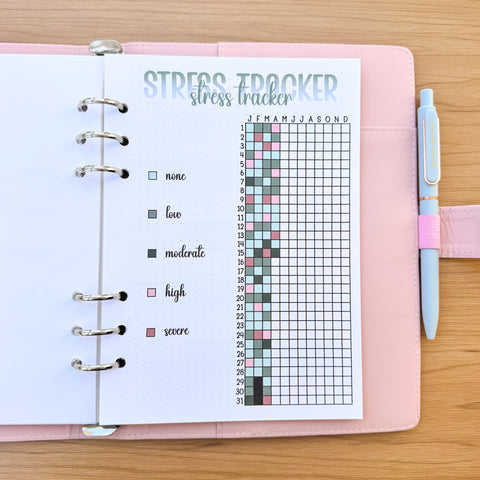 STRESS TRACKER
stress tracker
J F M A M J J A S O N D
1
2
3
4
5
6
7
8
9
10
11
12
13
14
15
16
17
18
19
20
21
22
23
24
25
26
27
28
29
30
31
none
low
moderate
high
severe